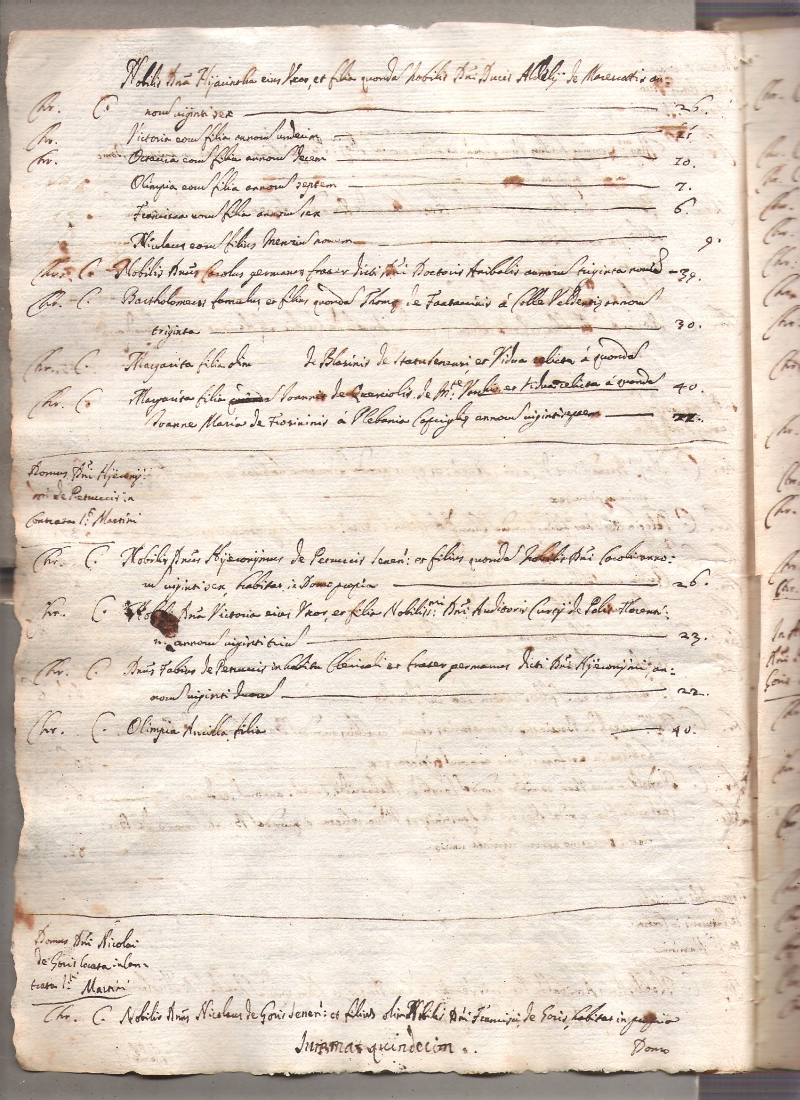 Nobilis Dna Hyacintha eius Uxor, et filia quondam Nobilis Dni Ducis de Marescottis an-
Chr. C. norum viginti sex 26.
Chr. Victoria eorum filia annorum undecim 11
Chr. eorum filia annorum decem 10.
Olimpia eorum filia annorum septem 7.
Francisca eorum filia annorum sex 6.
Nicolaus eorum filius mensium novem 9.
Chr. C. Nobilis Dnus Carolus germanus frater dicti Dni Doctoris Anibalis annorum triginta novem 39.
Chr. C. Bartholomeus famulus et filius quondam Thomę de à Colle annorum
triginta 30.
Chr. C. Margarita filia olim de Blasinis de Statu Senensi et Vidua relicta à quondam
Chr. C. Margarita filia Joannis de de et Vidua relicta à quondam 40.
Joanne Maria de à Plebania annorum viginti septem
Domus Dni Hyerony-
mi de Petruccis in
Contrata S. Martini
Chr. C. Nobilis Dnus Hyeronymus de Petruccis Senen: et filius quondam Nobilis Dni Caroli anno:
rum viginti sex, habitat in Domo propria 26.
Chr. C. Nobilis Dna Victoria eius Uxor, et filia Nobilissimi Dni Ludovici de Florenti-
annorum viginti trium 23.
Chr. C. Dnus Fabius de Petruccis in habitu Clericali et frater germanus dicti Dni Hyeronymi, an:
norum viginti duorum 22.
Chr. C. Olimpia Ancilla, filia 40.
Domus Dni Nicolai
de Goris locata in Con-
trata S. Martini
Chr. C. Nobilis Dnus Nicolaus de Goris Senen: et filius olim Nobilis Dni Francisci de Goris, habitat in propria
Summa quindecim. Domo